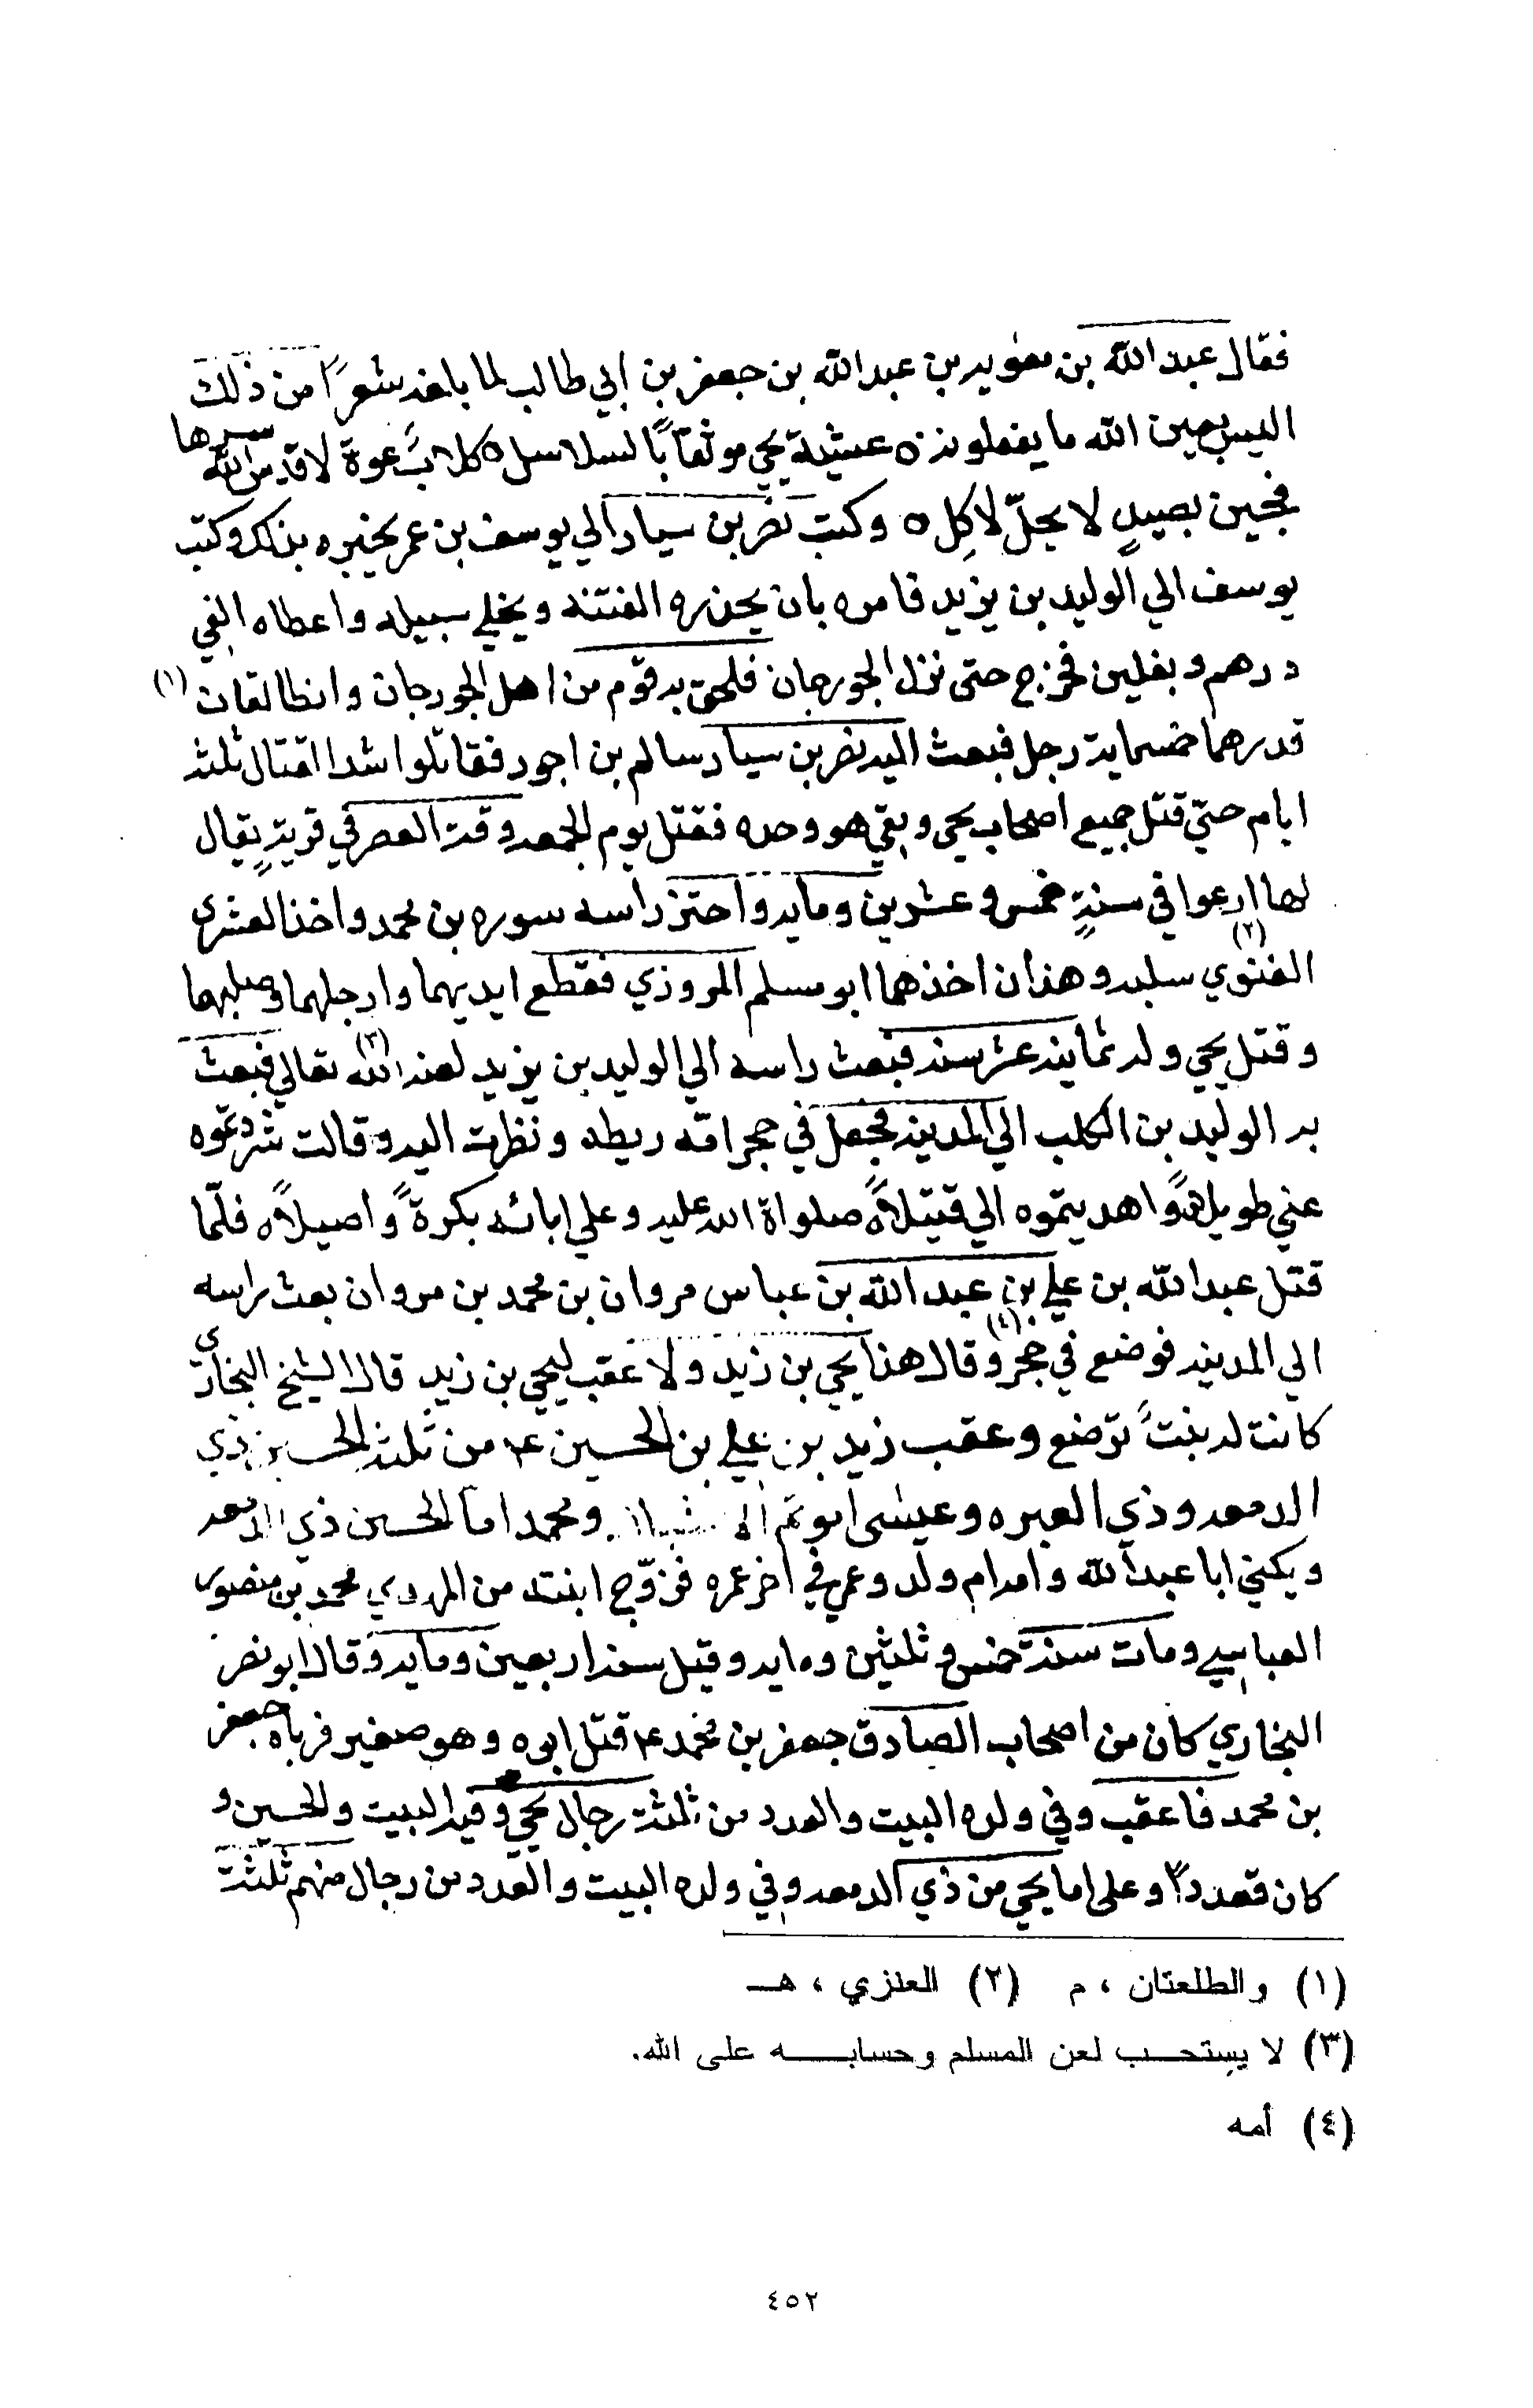 فقال عبد الله بن معويه بن عبد الله بن جعفر بن ابي طالب لما بلغه شعرًا من ذلك
اليس بعين الله ما يفعلونه ٥ عشية يحي موثقًا بالسلاسل ٥ كلاب عوة لا قدس الله سرها
فجين بصيدٍ لا يحلّ لاكِل ٥ وكتب نصر بن سيار الي يوسف بن عمر يخبره بذلك وكتب
يوسف الي الوليد بن يزيد فامره بان يحذره الفتنه ويخلي سبيله واعطاه الفي
درهم وبغلين فخرج حتى نزل الجورجان فلحق به قوم من اهل الجورجان والطالقان (١)
قدرهما خمسمايه رجل فبعث اليه نصر بن سيار سالم بن اجور فقاتلوا اشد القتال ثلثه
ايام حتي قتل جميع اصحاب يحي وبقي هو وحده فقتل يوم الجمعه وقت العصر في قريةٍ يقال
لها ارعوا في سنةٍ خمس وعشرين ومايه واحتز راسه سوره بن محمد واخذ العنزي
الغنوي (٢) سلبه وهذان اخذهما ابو مسلم المروزي فقطع ايديهما وارجلهما وصلبهما
وقتل يحي وله ثمانيه عشر سنه فبعث راسه الي الوليد بن يزيد لعنه الله (٣) تعالي فبعث
به الوليد بن الكلب الي المدينه فجعل في حجر امه ريطه ونظرت اليه وقالت شردتموه
عني طويلا واهديتموه الي قتيلًا ٥ صلواة الله عليه وعلي ابائه بكرةً واصيلًا ٥ فلمّا
قتل عبد الله بن علي بن عبد الله بن عباس مروان بن محمد بن مروان بعث براسه
الي المدينه فوضع في حجر (٤) وقال هذا يحي بن زيد ولا عقب ليحي بن زيد قال الشيخ البخاري
كانت له بنتً ترضع وعقب زيد بن علي بن الحسين ع من ثلثه الحسين ذي
الدمعه وذي العبره وعيسى ابو ومحمد اما الحسين ذي الدمعه
ويكني ابا عبد الله وامه ام ولد وعمي في اخر عمره فزوّج ابنته من المهدي محمد بن منصور
العباسي ومات سنة خمس وثلثين ومايه وقيل سنه اربعين ومايه وقال ابو نصر
البخاري كان من اصحاب الصادق جعفر بن محمد ع قتل ابوه وهو صغير فرباه جعفر
بن محمد فاعقب وفي ولده البيت والعدد من ثلثة رجال يحي وفيه البيت والحسين و
كان قعددًا وعلى اما يحي من ذي الدمعه وفي ولده البيت والعدد من رجال منهم ثلثة
(١) والطلعتان ، م (٢) العنزي ، هـ
(٣) لا يستحب لعن المسلم وحسابه على الله.
(٤) أمه
٤٥٢